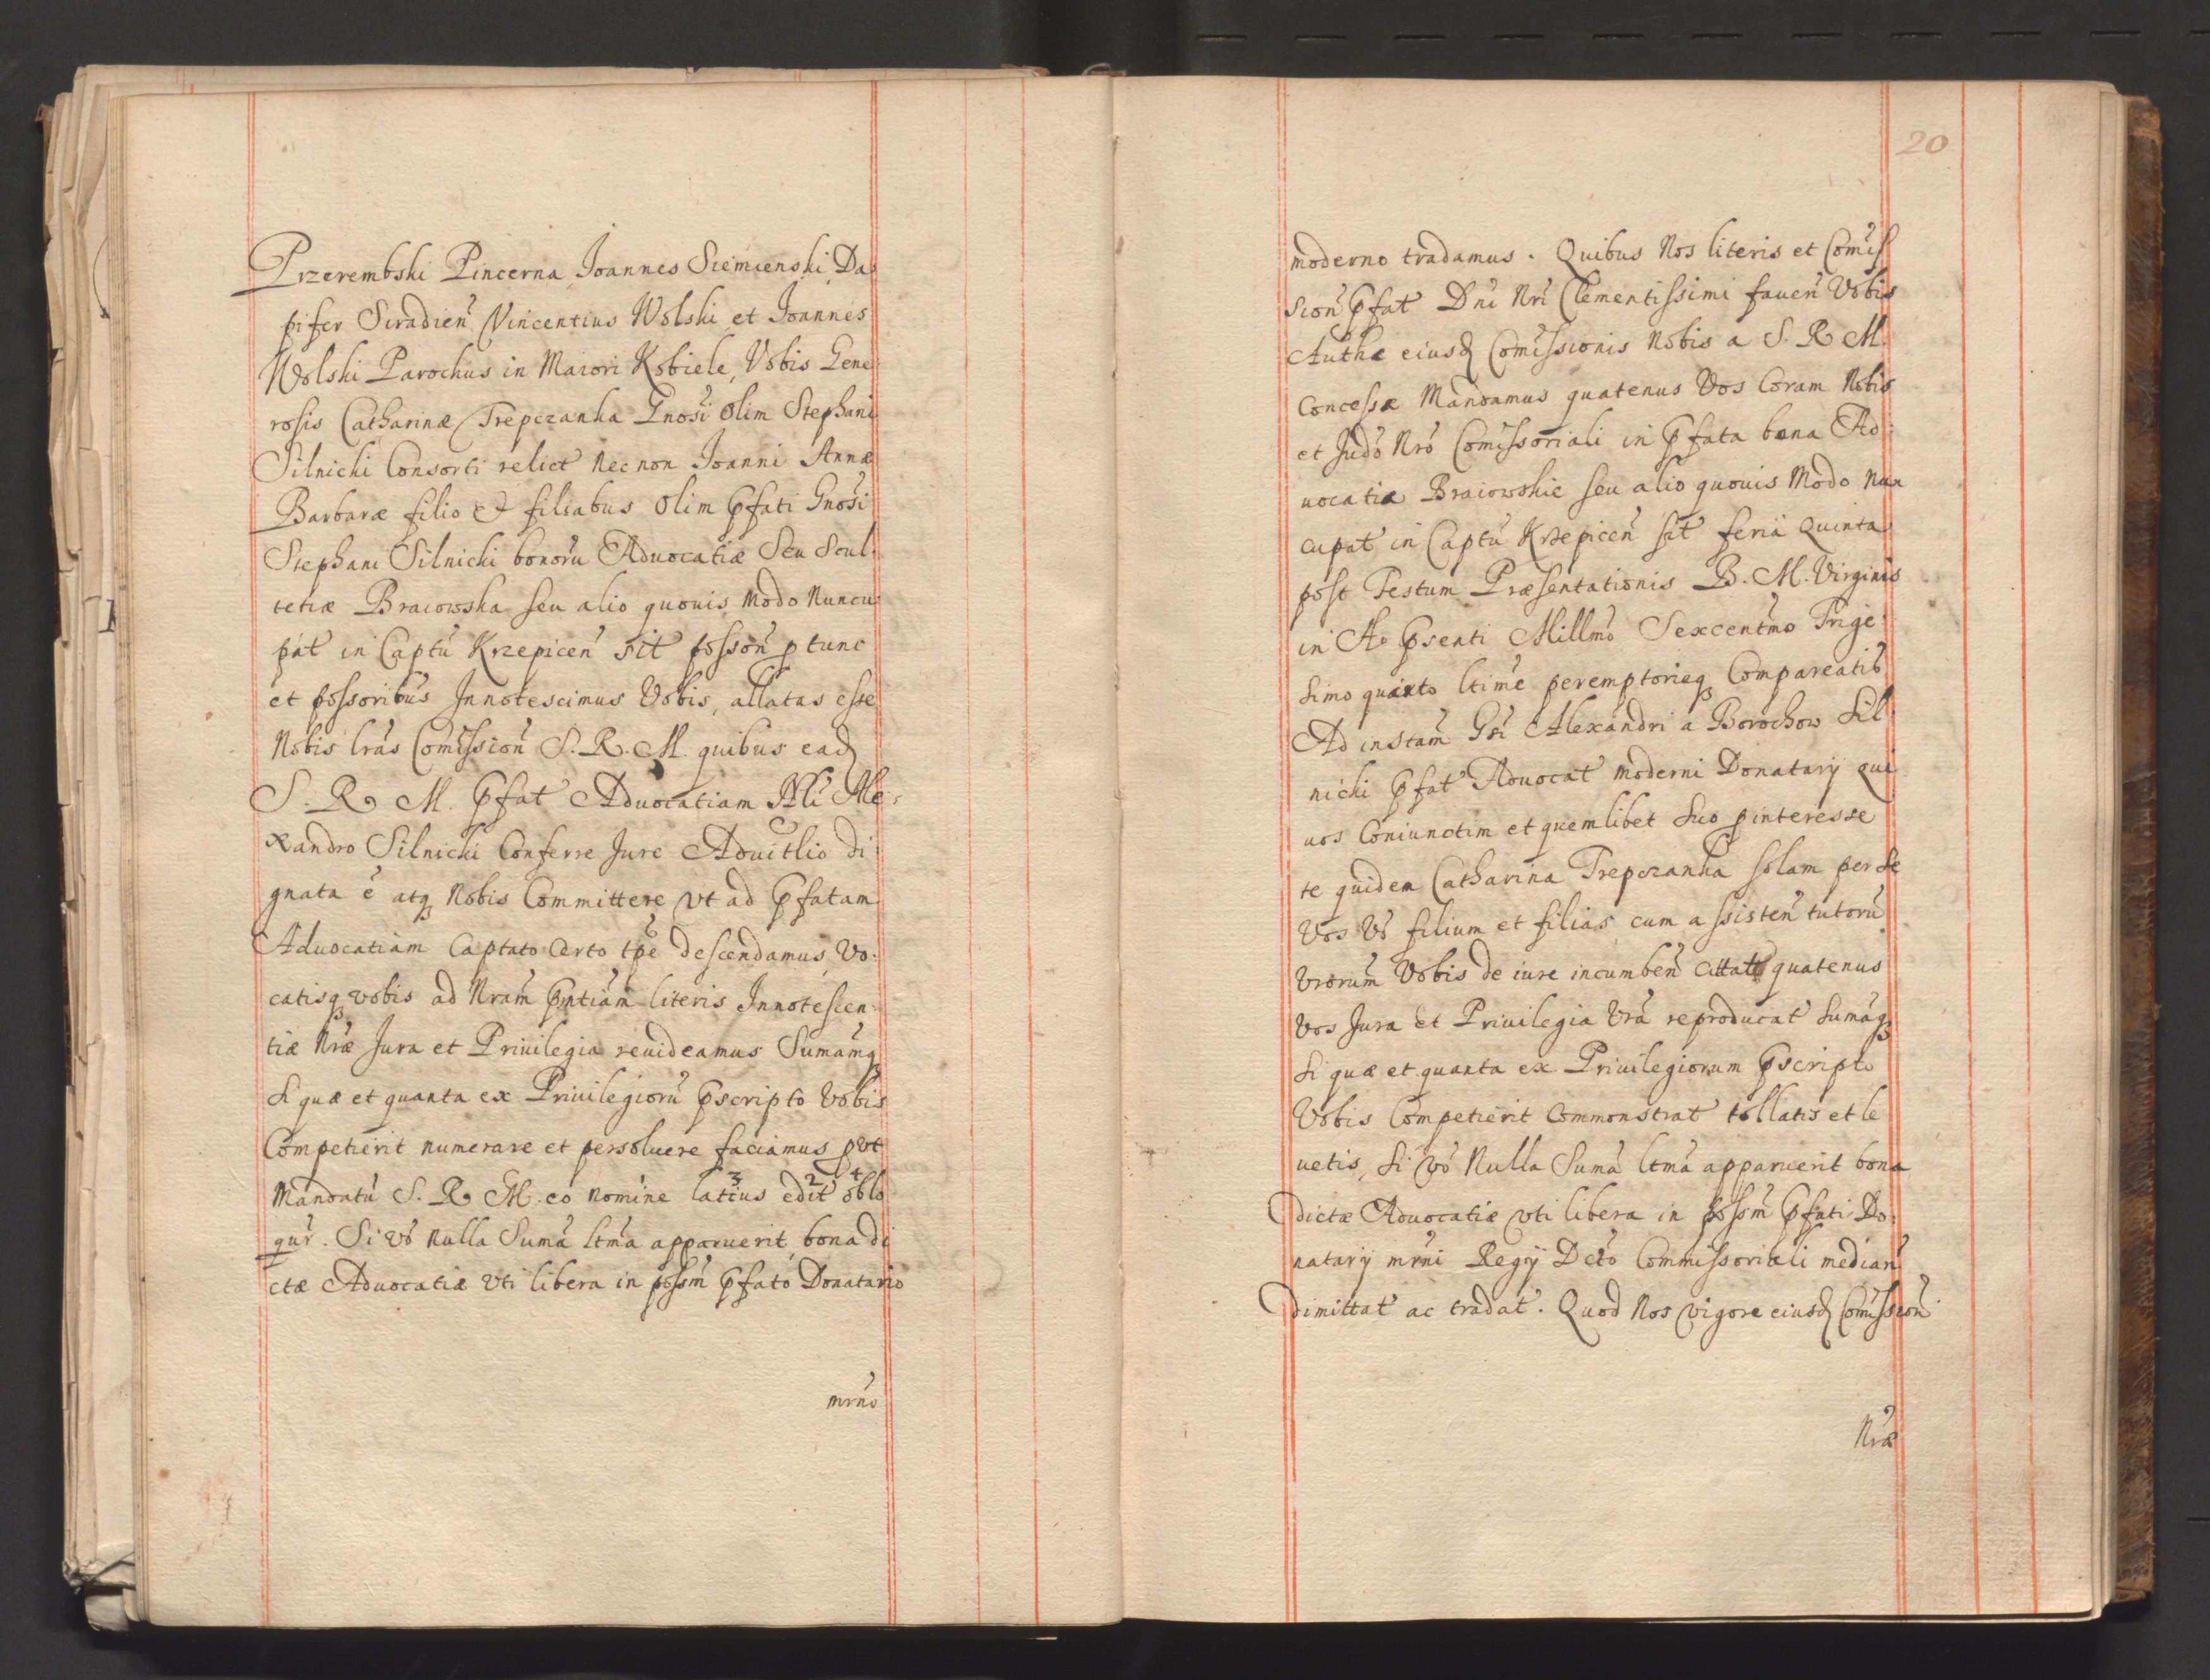 Przerembski Pincerna Joannes Siemienski Da-
pifer Siradien Vincentius Wolski et Joannes
Wolski Parochus in Maiori Kobiele, Vobis Gene
rosis Catharinæ Trepczanka Gnosi olim Stephani
Silnicki Consorti relict necnon Joanni Annæ
Barbaræ filio et filiabus olim pfati Gnosi
Stephani Silnicki bonoru Aduocatiæ Seu Scul-
tetiæ Braiowska seu alio quouis modo Nuncu
pat in Captu Krzepicen sit posson p tunc
et possoribus Innotescimus Vobis, allatas esse
Nobis lras Comission S. R. M. quibus ead
S. R. M. pfat Aduocatiam Nli Ale-
xandro Silnicki Conferre Jure Aduitlio di
gnata e atq Nobis Committere vt ad pfatam
Aduocatiam Captato Certo tpe descendamus, Vo-
catisq vobis ad Nram pntiam literis Innotescen-
tiæ Nræ Jura et Priuilegia reuideamus Sumamq
si quæ et quanta ex Priuilegioru pscripto Vobis
Competierit numerare et persoluere faciamus pvt
3 2 4
Mandatu S. R. M. eo nomine latius edit oblo
qur. Si vo nulla Suma ltma apparuerit bona di
ctæ Aduocatiæ vti libera in possm pfato Donatario
mrno
20
moderno tradamus. Quibus Nos literis et Comis
sion pfat Dni Nri Clementissimi fauen Vobis
Authæ eiusd Comissionis Nobis a S. R. M.
Concessæ Mandamus quatenus Vos Coram Nobis
et Judo Nro Comissoriali in pfata bona Ad-
uocatiæ Braiowskie seu alio quouis Modo Nun
cupat in Captu Krzepicen sit feria Quinta
post Festum Præsentationis B. M. Virginis
in Ao psenti Millmo Sexcentmo Trige
simo quinto ltime peremptorieq Compareatis
Ad instam Gsi Alexandri a Borochow Sil-
nicki pfat Aduocat moderni Donatarij qui
uos Coniunctim et quemlibet suo pinteresse
te quidem Catharina Trepczanka solam per se
Vos Vo filium et filias cum assisten tutoru
Vrorum Vobis de iure incumben Cittat quatenus
Vos Jura et Priuilegia Vra reproducat Sumaq
si quæ et quanta ex Priuilegiorum pscripto
Vobis Competierit Commonstrat tollatis et le
uetis, Si vo Nulla Suma ltma apparuerit bona
dictæ Aduocatiæ vti libera in possm pfati Do-
natarij mrni Regij Deto Commissoriali median
dimittat ac tradat. Quod Nos vigore eiusd Comission
Nræ